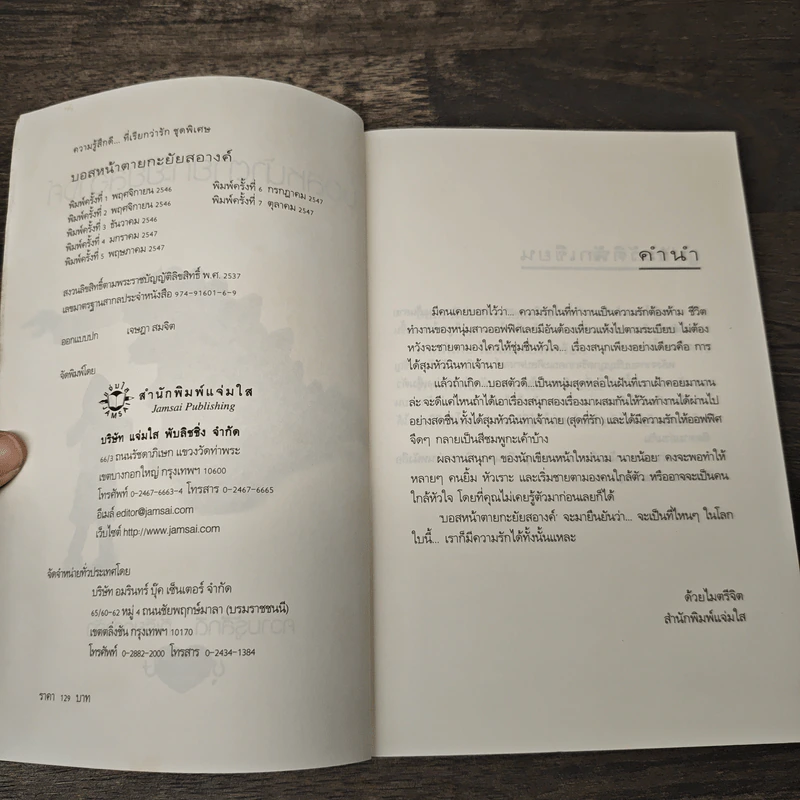 ความรู้สึกดี... ที่เรียกว่ารัก ชุดพิเศษ
บอสหน้าตายกะยัยสอางค์
พิมพ์ครั้งที่ 1 พฤศจิกายน 2546
พิมพ์ครั้งที่ 2 พฤศจิกายน 2546
พิมพ์ครั้งที่ 3 ธันวาคม 2546
พิมพ์ครั้งที่ 4 มกราคม 2547
พิมพ์ครั้งที่ 5 พฤษภาคม 2547
พิมพ์ครั้งที่ 6 กรกฎาคม 2547
พิมพ์ครั้งที่ 7 ตุลาคม 2547
สงวนลิขสิทธิ์ตามพระราชบัญญัติลิขสิทธิ์ พ.ศ. 2537
เลขมาตรฐานสากลประจำหนังสือ 974-91601-6-9
ออกแบบปก เจษฎา สมจิต
จัดพิมพ์โดย
สำนักพิมพ์แจ่มใส
Jamsai Publishing
บริษัท แจ่มใส พับลิชชิ่ง จำกัด
66/3 ถนนรัชดาภิเษก แขวงวัดท่าพระ
เขตบางกอกใหญ่ กรุงเทพฯ 10600
โทรศัพท์ 0-2467-6663-4 โทรสาร 0-2467-6665
อีเมล์ editor@jamsai.com
เว็บไซต์ http://www.jamsai.com
จัดจำหน่ายทั่วประเทศโดย
บริษัท อมรินทร์ บุ๊ค เซ็นเตอร์ จำกัด
65/60-62 หมู่ 4 ถนนชัยพฤกษ์มาลา (บรมราชชนนี)
เขตตลิ่งชัน กรุงเทพฯ 10170
โทรศัพท์ 0-2882-2000 โทรสาร 0-2434-1384
ราคา 129 บาท
คำนำ
มีคนเคยบอกไว้ว่า... ความรักในที่ทำงานเป็นความรักต้องห้าม ชีวิต
ทำงานของหนุ่มสาวออฟฟิศเลยมีอันต้องเหี่ยวแห้งไปตามระเบียบ ไม่ต้อง
หวังจะชายตามองใครให้ชุ่มชื่นหัวใจ... เรื่องสนุกเพียงอย่างเดียวคือ การ
ได้สุมหัวนินทาเจ้านาย
แล้วถ้าเกิด...บอสตัวดี...เป็นหนุ่มสุดหล่อในฝันที่เราเฝ้าคอยมานาน
ล่ะ จะดีแค่ไหนถ้าได้เอาเรื่องสนุกสองเรื่องมาผสมกันให้วันทำงานได้ผ่านไป
อย่างสดชื่น ทั้งได้สุมหัวนินทาเจ้านาย (สุดที่รัก) และได้มีความรักให้ออฟฟิศ
จืดๆ กลายเป็นสีชมพูกะเค้าบ้าง
ผลงานสนุกๆ ของนักเขียนหน้าใหม่นาม 'นายน้อย' คงจะพอทำให้
หลายๆ คนยิ้ม หัวเราะ และเริ่มชายตามองคนใกล้ตัว หรืออาจจะเป็นคน
ใกล้หัวใจ โดยที่คุณไม่เคยรู้ตัวมาก่อนเลยก็ได้
'บอสหน้าตายกะยัยสอางค์' จะมายืนยันว่า... จะเป็นที่ไหนๆ ในโลก
ใบนี้... เราก็มีความรักได้ทั้งนั้นแหละ
ด้วยไมตรีจิต
สำนักพิมพ์แจ่มใส